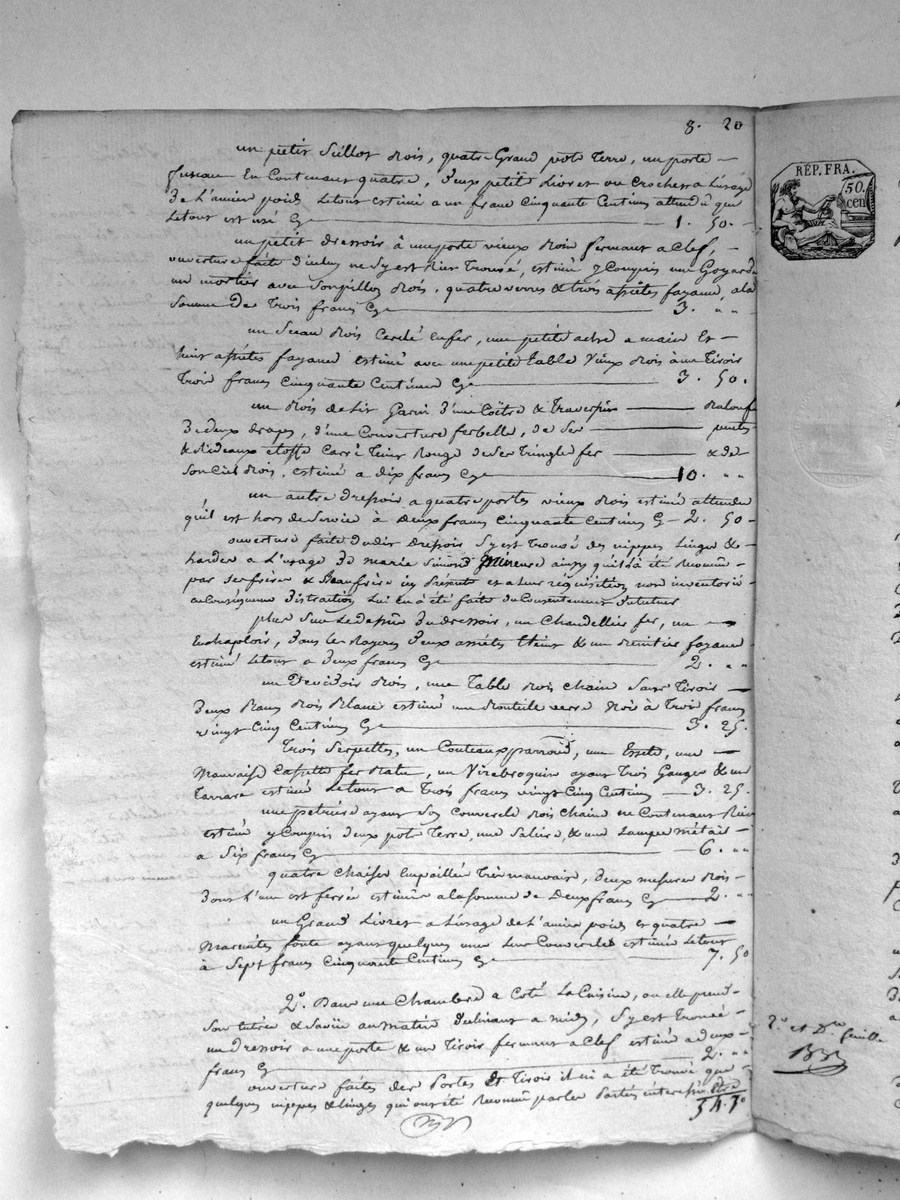 8. 20
un petit Seillot Bois, quatre Grand pots terre, un porte
fuseau En Contenant quatre, deux petit Livret ou Crochet a L'usage
de L'ancien poids Le tout estimé a un franc Cinquante Centimes attendu que
Le tout est usé Cy 1. 50.
un petit dressoir à une porte vieux Bois fermant a Clef,
ouverture faite d'icelui ne S'y est Rien Trouvé, estimé y Compris une Goyarde
un mortier avec Son pillon Bois, quatre verres & trois assietes fayance, a la
Somme De Trois francs Cy 3. " "
un Seau Bois Cerclé en fer, une petite ache a main Et
huit assietes fayance estimé avec une petite table vieux Bois à un Tiroir
Trois francs Cinquante Centimes Cy 3. 50.
un Bois de Lit Garni d'une Coëtre & Traversin
de deux draps, d'une Couverture, de Ses
& Rideaux étoffe Carré Teint Rouge de Ses Tringles fer & de
Son Ciel Bois, estimé a dix francs Cy 10. " "
un autre Dressoir a quatre portes vieux Bois estimé attendu
qu'il est hors de Service à Deux francs Cinquante Centimes Cy 2. 50
ouverture faite dudit Dressoir S'y est Trouvé des nippes Linges &
hardes a L'usage De Marie Simond Mineure ainsy qu'il a été Reconnu
par Ses frères & Beaufrère icy Présents et a leur réquisition non inventorié
en Conséquence Distraction Lui en a été faite du Consentement du tuteur
plus Sur Le dessus du dressoir, un Chandellier fer, un
, dans les Rayons deux assietes & un fayance
estimé Le tout a Deux francs Cy 2. " "
un Devidoir Bois, une Table Bois chaine Sans Tiroir
deux Bancs Bois Blanc estimé une Bouteille verre Noir à Trois francs
vingt Cinq Centimes Cy 3. 25.
Trois Serpettes, un Couteaux, une, une
Mauvaise fer Batu, un Virebroquin ayant Trois Gouges & un
Tarrare estimé Le tout a Trois francs vingt Cinq Centimes 3. 25.
une petriere ayant Son Couvercle Bois Chaine ne Contenant Rien
estimé y Compris deux pots Terre, une Saliere, & une Lampe Métail
a Six francs Cy 6. " "
quatre Chaises Empaillée Très mauvaise, deux mesures Bois
dont L'une est ferrée estimée a la somme de Deux francs Cy 2. "
un Grand Livret a L'usage de L'ancien poids et quatre
Marmites fonte ayant quelques unes Leur Couvercles estimé Le tout
à Sept francs Cinquante Centimes Cy 7. 50
2.° Dans une Chambre a Coté La Cuisine, ou elle prend
Son entrée & Saisine au matin du levant a midi, S'y est Trouvé
un Dressoir a une porte & un Tiroir fermant a Clef estimé a deux
francs Cy 2. " "
ouverture faites des Portes Et Tiroir il n'i a été Trouvé que
quelques nippes & Linges qui ont été Reconnu par les Parties interessées être
54. 70
RÉP. FRA.
50.
cen
2.° et Dre feuille